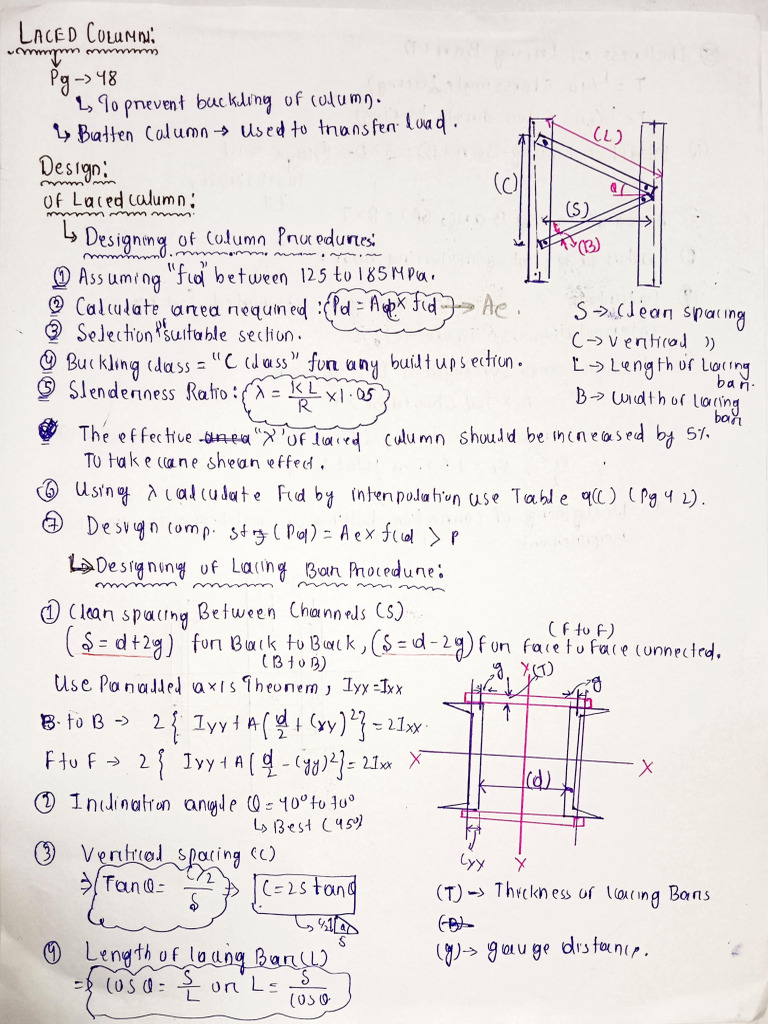 LACED COLUMN:
Pg → 48
↳ To prevent buckling of column.
↳ Batten Column → Used to transfer load.
Design:
of Laced column:
↳ Designing of Column Procedures:
① Assuming "fcd" between 125 to 185 MPa.
② Calculate area required: Pd = Ae × fcd → Ae.
③ Selection of suitable section.
④ Buckling class = "C class" for any built up section.
⑤ Slenderness Ratio: λ = KL/R × 1.05
The effective "λ" of laced column should be increased by 5%
To take care shear effect.
⑥ Using λ calculate Fcd by interpolation use Table 9(C) (Pg 42).
⑦ Design comp. stg (Pd) = Ae × fcd > P
(L)
(C)
(S)
θ
(B)
S → Clear spacing
C → Vertical "
L → Length of Lacing bar.
B → Width of Lacing bar
↳ Designing of Lacing Bar Procedure:
① Clear spacing Between Channels (S)
(S = d + 2g) for Back to Back, (S = d - 2g) for face to face connected.
(B to B)
(F to F)
Use Parallel axis Theorem, Iyy = Ixx
B to B → 2{ Iyy + A(d/2 + Cyy)²} = 2Ixx.
F to F → 2{ Iyy + A(d/2 - Cyy)²} = 2Ixx
② Inclination angle θ = 40° to 70°
↳ Best (45°)
③ Vertical spacing (C)
⇒ Tanθ = C/2 / S ⇒ C = 2S tanθ
↳ C/2 θ S
④ Length of lacing Bar (L)
⇒ cosθ = S/L or L = S/cosθ
g
Y
(T)
g
X
X
(d)
Cyy
X
(T) → Thickness of lacing Bars
(g) → gauge distance.